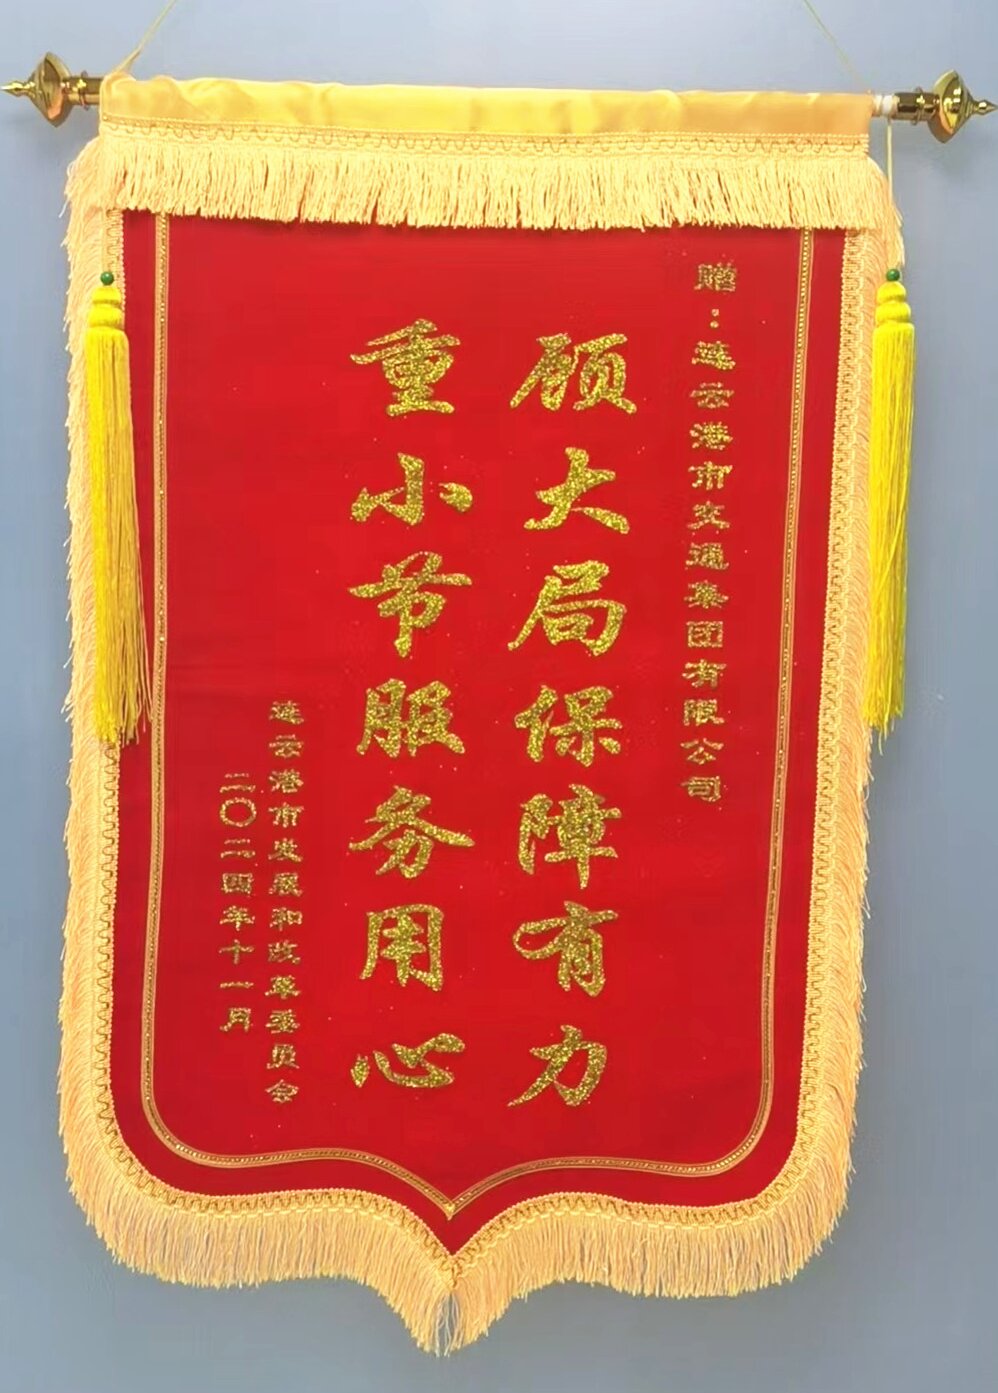 赠：连云港市交通集团有限公司
顾大局保障有力
重小节服务用心
连云港市发展和改革委员会
二〇二四年十一月